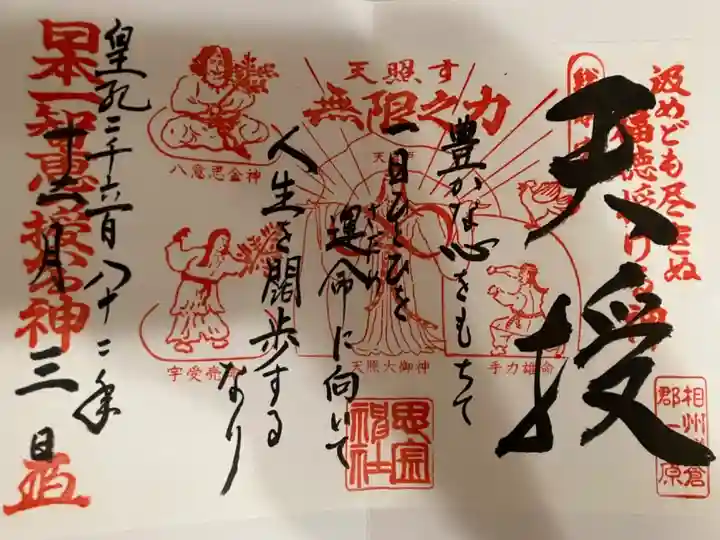 汲めども尽きぬ
福徳授ける神
相州鎌倉
郡一原
天授
天照す
無限之力
豊かな心をもちて
一日ひとひを
運命に向いて
人生を闊歩する
なり
八意思金神
宇受売命
天照大御神
手力雄命
思金
神社
皇紀二千六百八十二年
十一月三日
日本一知恵の授け神